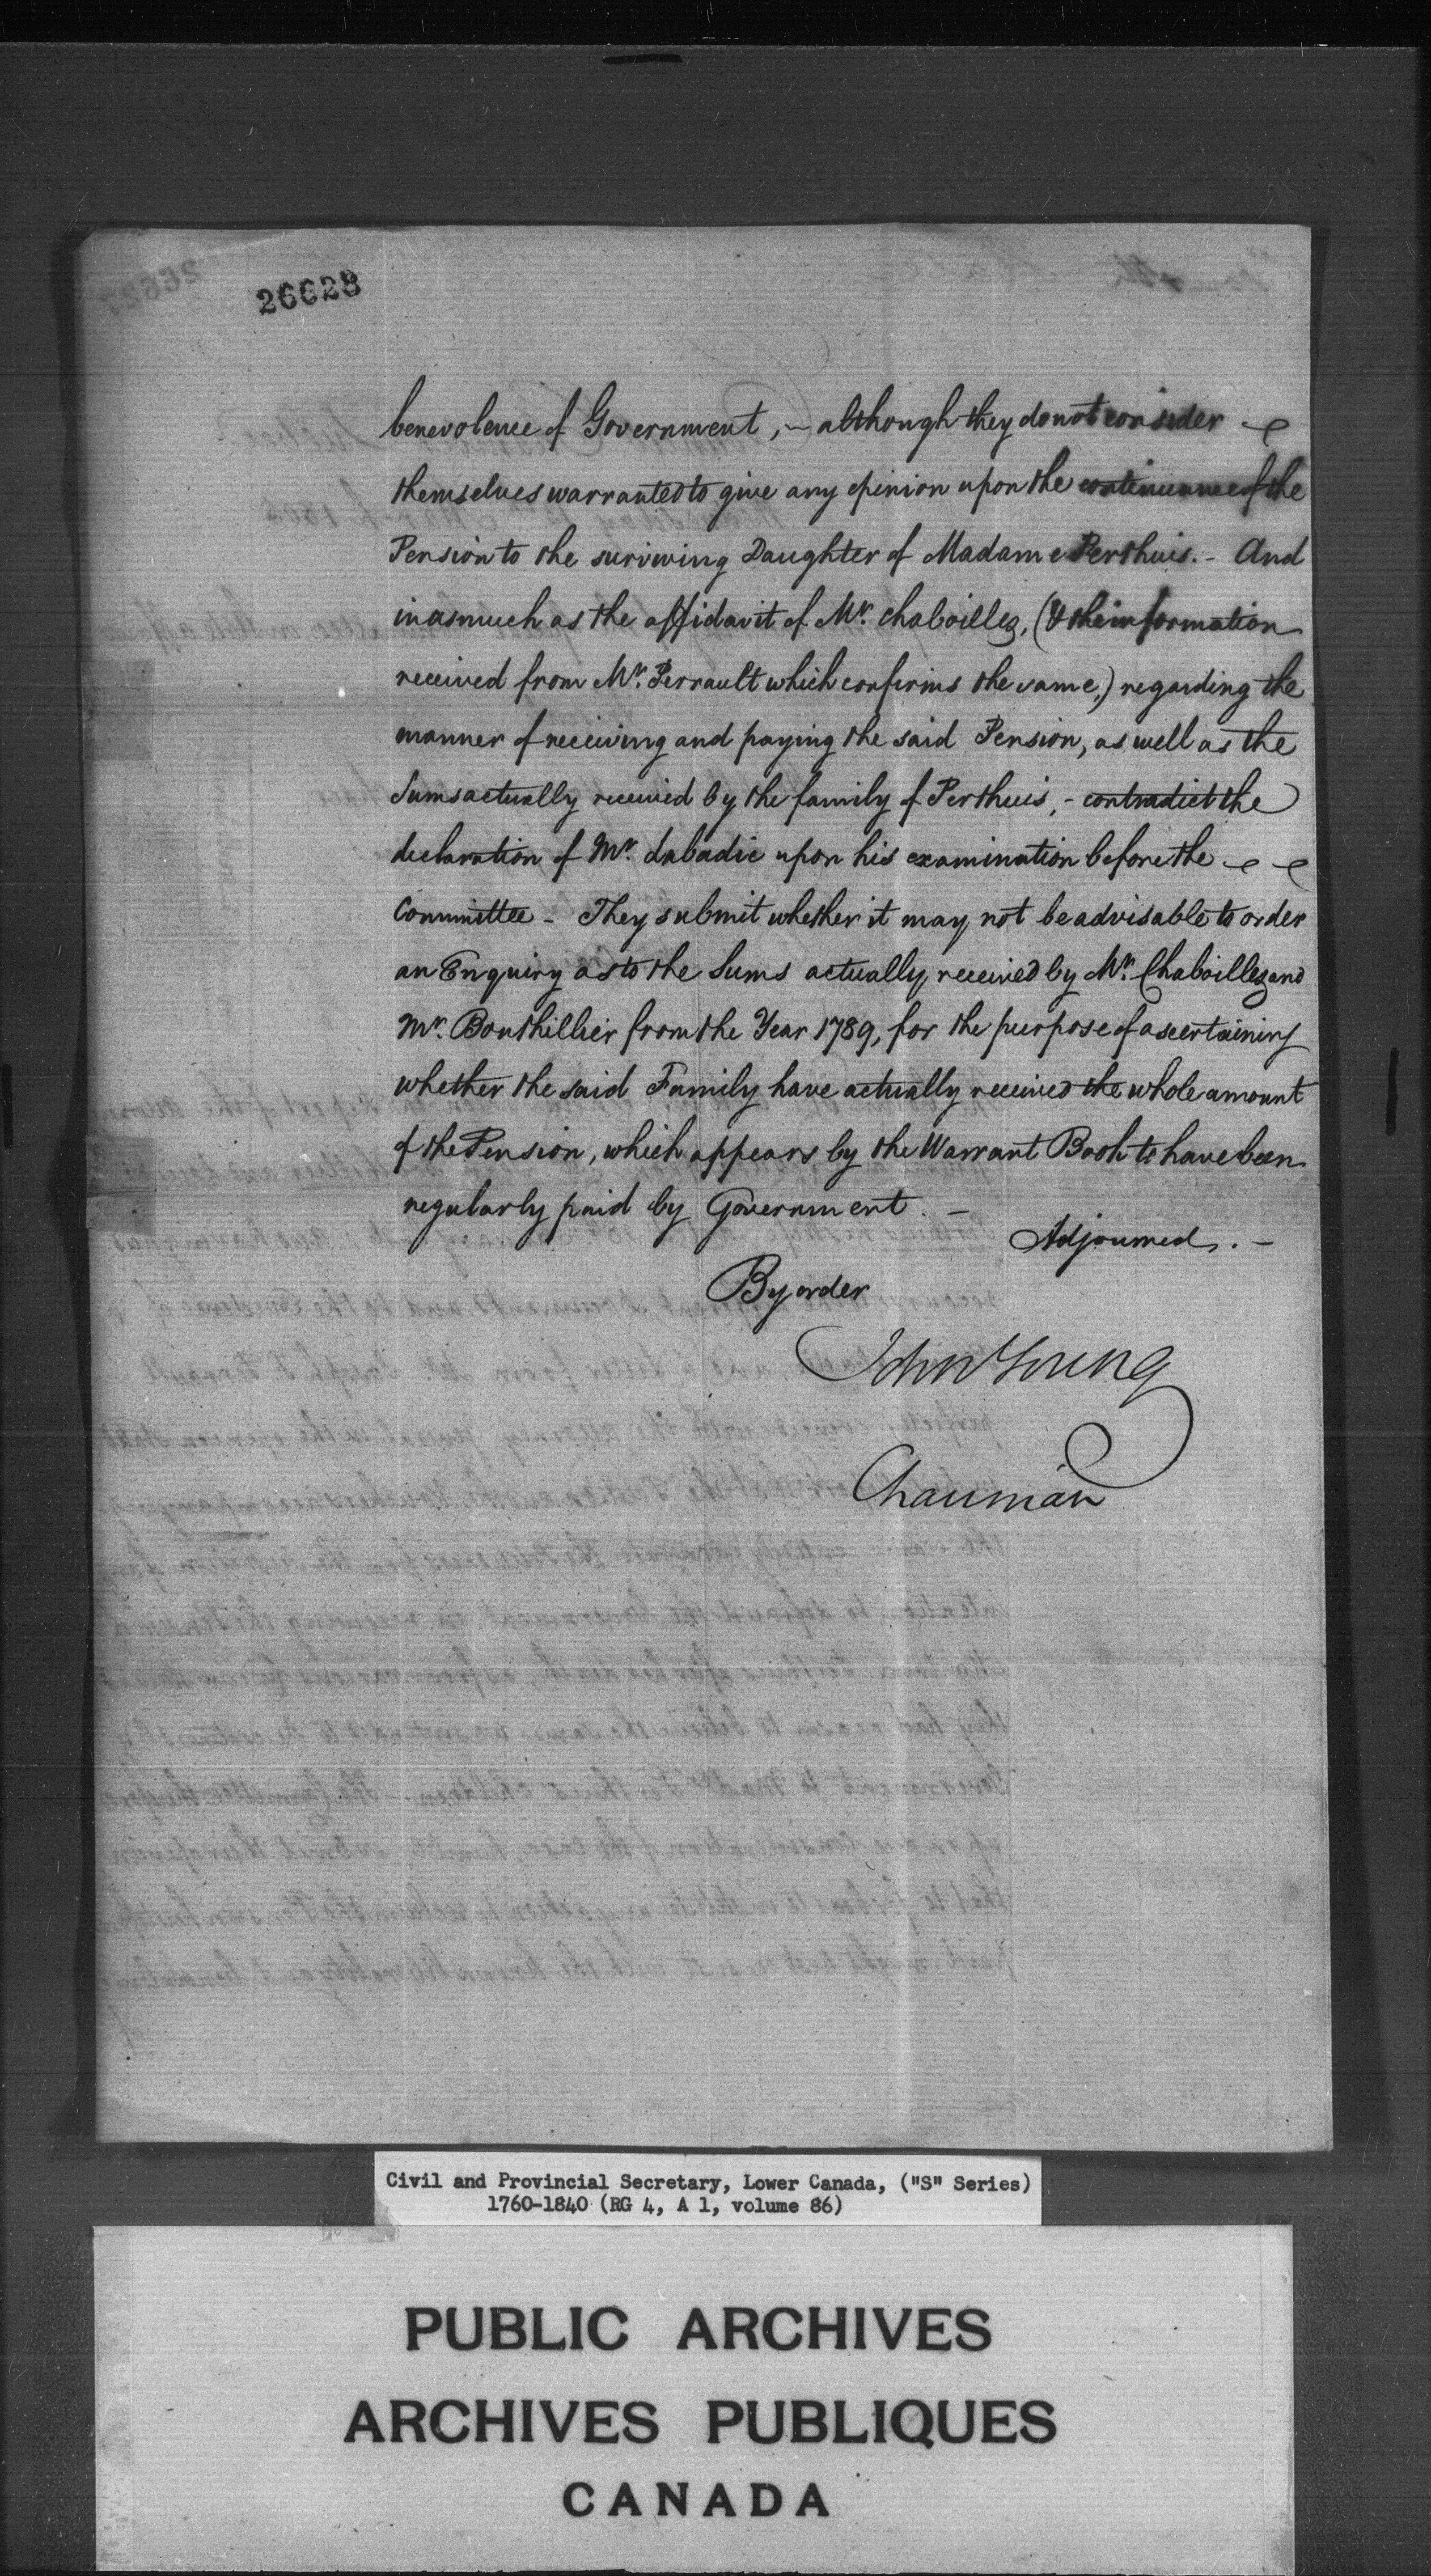 26628
benevolence of Government, - although they do not consider
themselves warranted to give any opinion upon the continuance of the
Pension to the surviving Daughter of Madame Perthuis. - And
inasmuch as the affidavit of Mr. Chaboillez, (& the information
received from Mr. Perrault which confirms the same,) regarding the
manner of receiving and paying the said Pension, as well as the
Sums actually received by the family of Perthuis, - contradict the
declaration of Mr. Labadie upon his examination before the
Committee - They submit whether it may not be advisable to order
an Enquiry as to the Sums actually received by Mr. Chaboillez and
Mr. Bouthillier from the Year 1789, for the purpose of ascertaining
whether the said Family have actually received the whole amount
of the Pension, which appears by the Warrant Book to have been
regularly paid by Government. -
Adjourned. -
By order
John Young
Chairman
Civil and Provincial Secretary, Lower Canada, ("S" Series)
1760-1840 (RG 4, A 1, volume 86)
PUBLIC ARCHIVES
ARCHIVES PUBLIQUES
CANADA